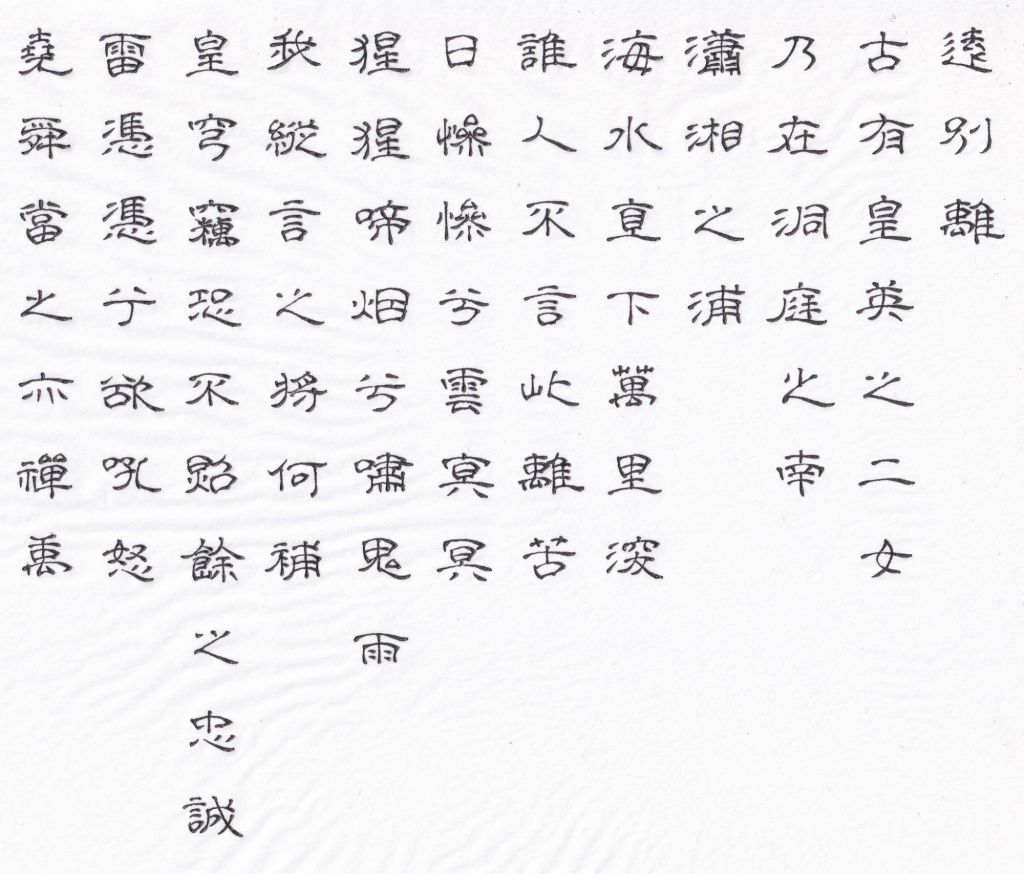 遠別離
古有皇英之二女
乃在洞庭之南
瀟湘之浦
海水直下萬里深
誰人不言此離苦
日慘慘兮雲冥冥
猩猩啼烟兮嘯鬼雨
我縱言之將何補
皇穹竊恐不照餘之忠誠
雷憑憑兮欲吼怒
堯舜當之亦禪禹